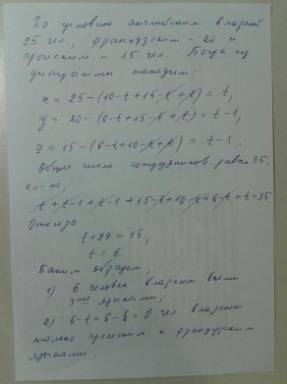 По условию английским владеют
25 чел, французским - 20 и
греческим - 15 чел. Тогда из
диаграммы находим:
x = 25-(10-t+15-t+t) = t,
y = 20-(6-t+15-t+t) = t-1,
z = 15-(6-t+10-t+t) = t-1.
Общее число сотрудников равно 35,
t+t-1+t-1+15-t+10-t+6-t+t=35
Отсюда
t+29=35,
t=6
Таким образом,
1) 6 человек владеют всеми
3мя языками;
2) 6-t=6-6=0 чел владеют
только греческим и французским
языками.